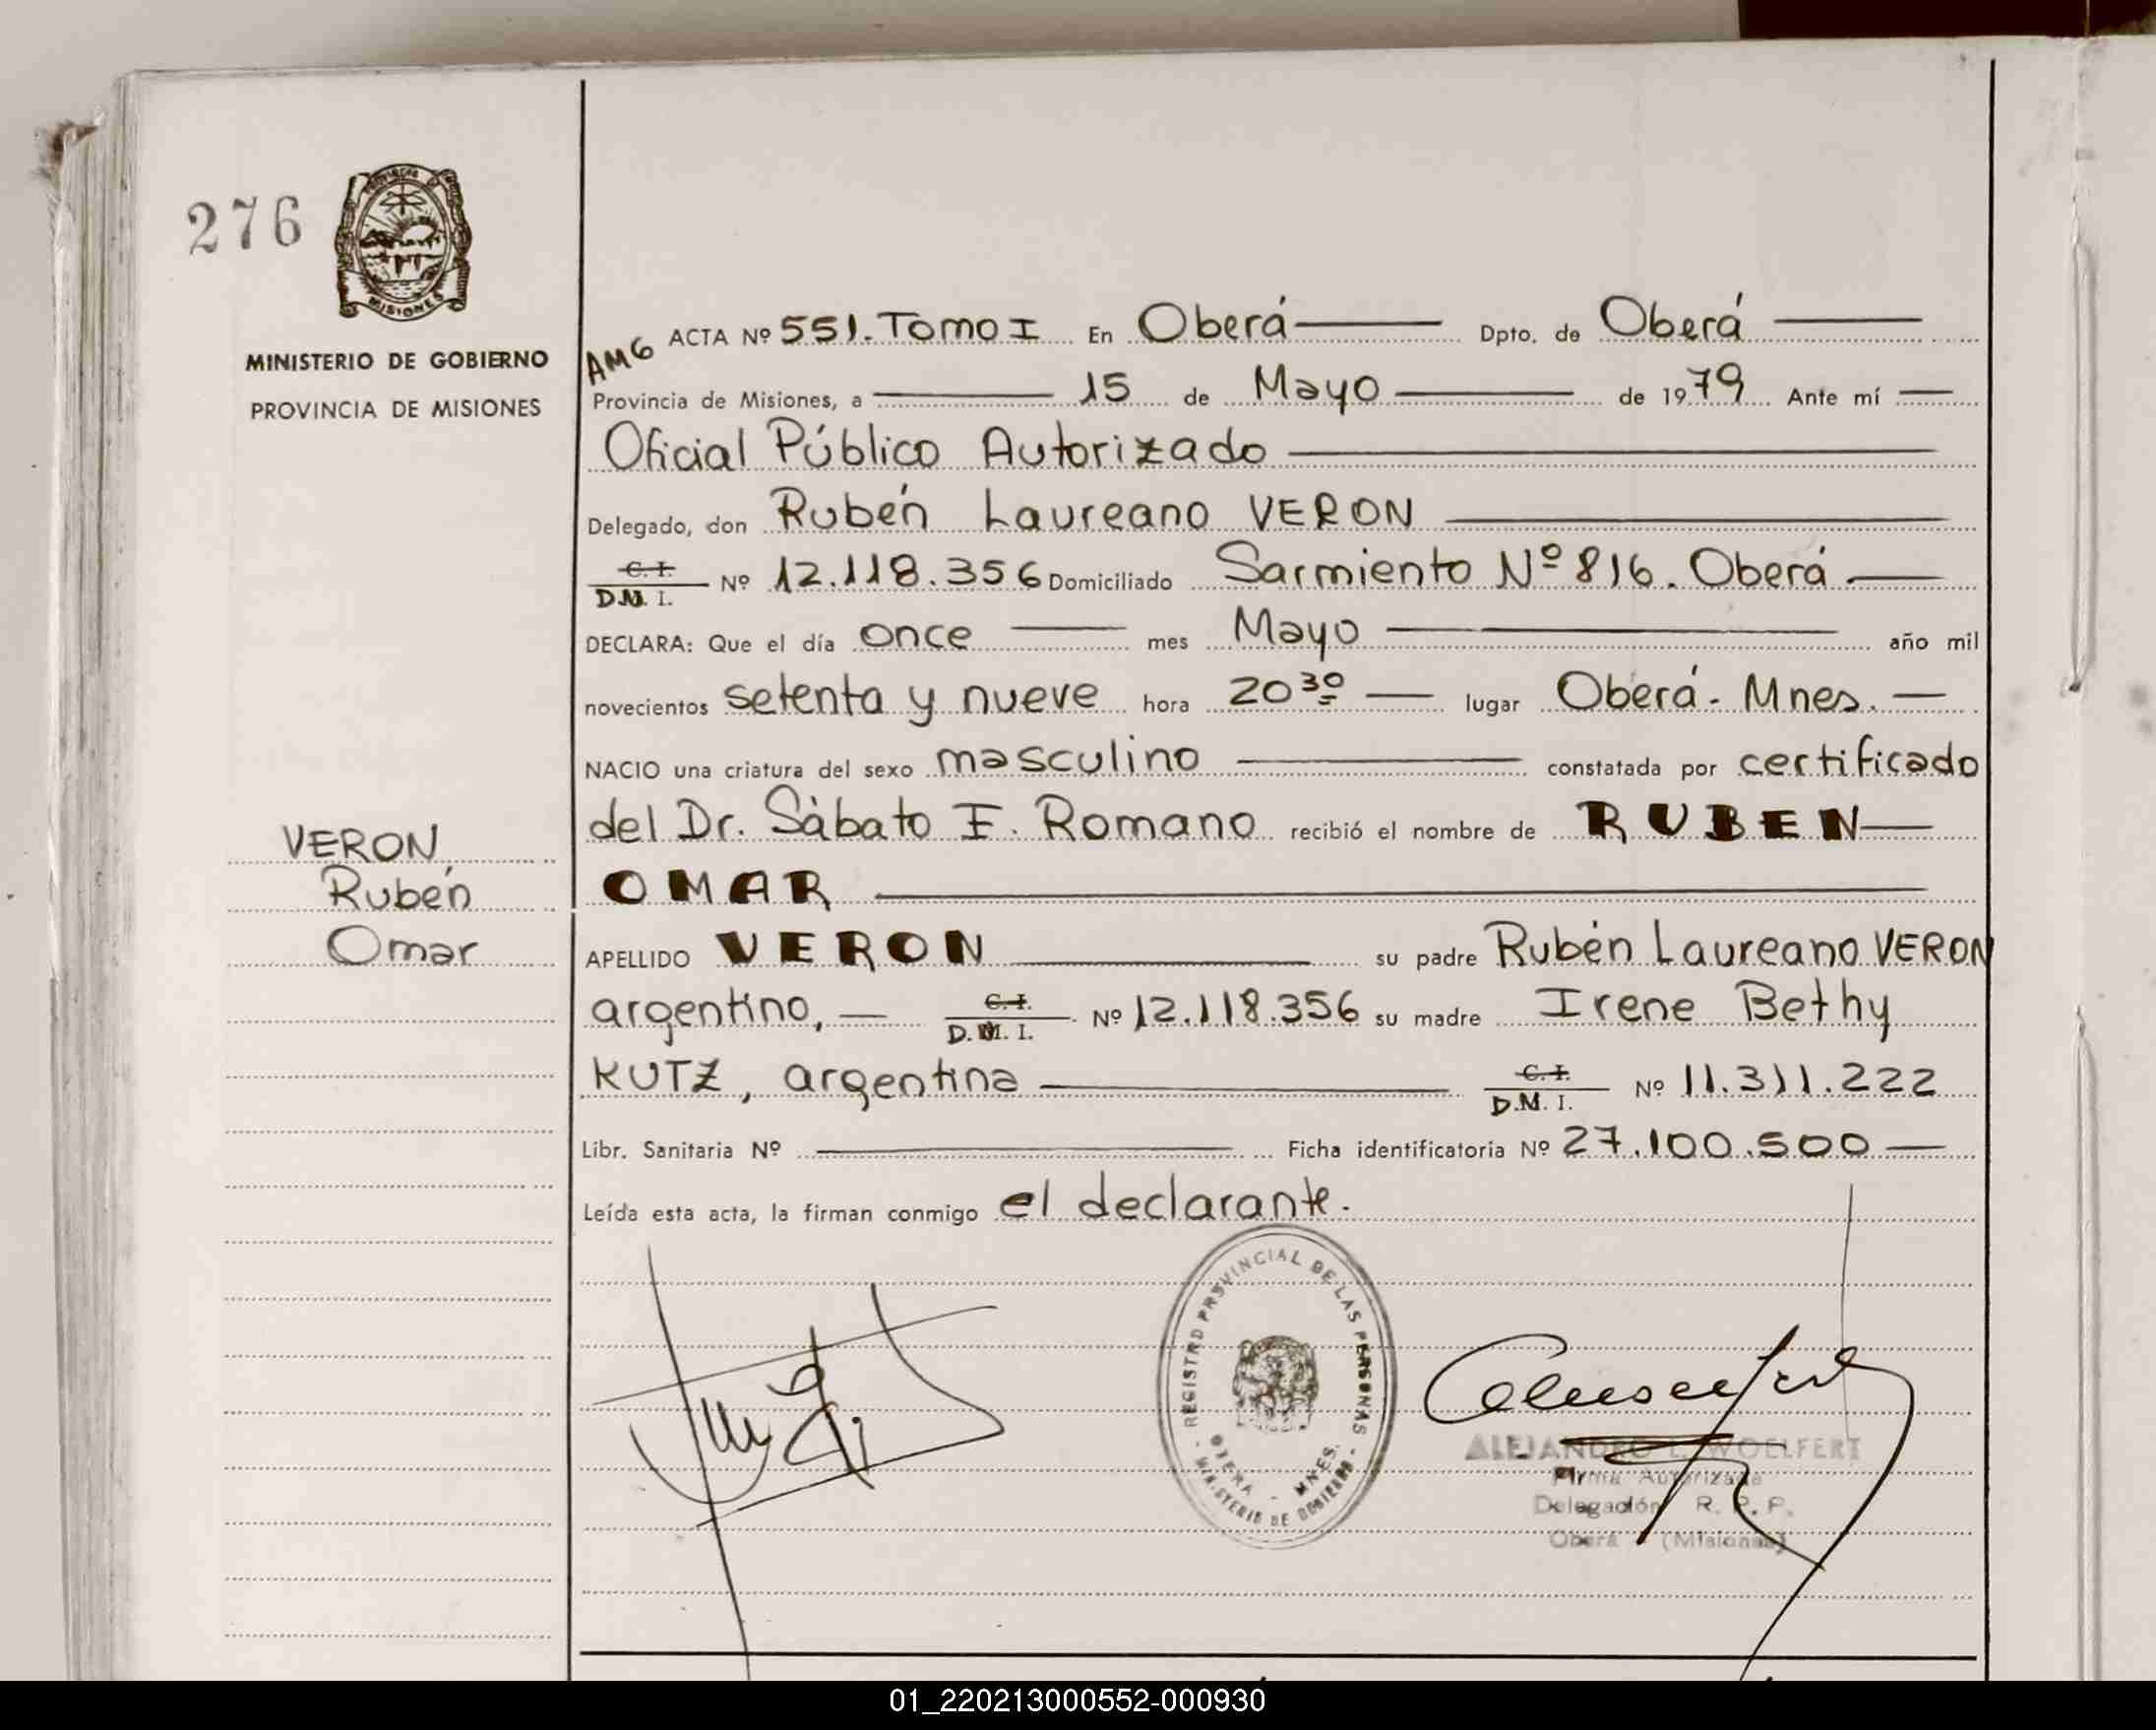 276
PROVINCIA DE
MISIONES
MINISTERIO DE GOBIERNO
PROVINCIA DE MISIONES
VERON,
Rubén
Omar
AMG
ACTA Nº 551. Tomo I En Oberá Dpto. de Oberá
Provincia de Misiones, a 15 de Mayo de 1979 Ante mí
Oficial Público Autorizado
Delegado, don Rubén Laureano VERON
C. I.
D.N. I. Nº 12.118.356 Domiciliado Sarmiento Nº 816. Oberá
DECLARA: Que el día once mes Mayo año mil
novecientos setenta y nueve hora 20 30 lugar Oberá - Mnes.
NACIO una criatura del sexo masculino constatada por certificado
del Dr. Sàbato F. Romano recibió el nombre de RUBEN
OMAR
APELLIDO VERON su padre Rubén Laureano VERON
argentino, C.I.
D.N. I. Nº 12.118.356 su madre Irene Bethy
KUTZ, argentina C. I.
D.N. I. Nº 11.311.222
Libr. Sanitaria Nº Ficha identificatoria Nº 27.100.500
Leída esta acta, la firman conmigo el declarante.
REGISTRO PROVINCIAL DE LAS PERSONAS
OBERA - MNES.
MINISTERIO DE GOBIERNO
ALEJANDRO L. WOELFERT
Firma Autorizada
Delegación R. P. P.
Oberá (Misiones)
01_220213000552-000930